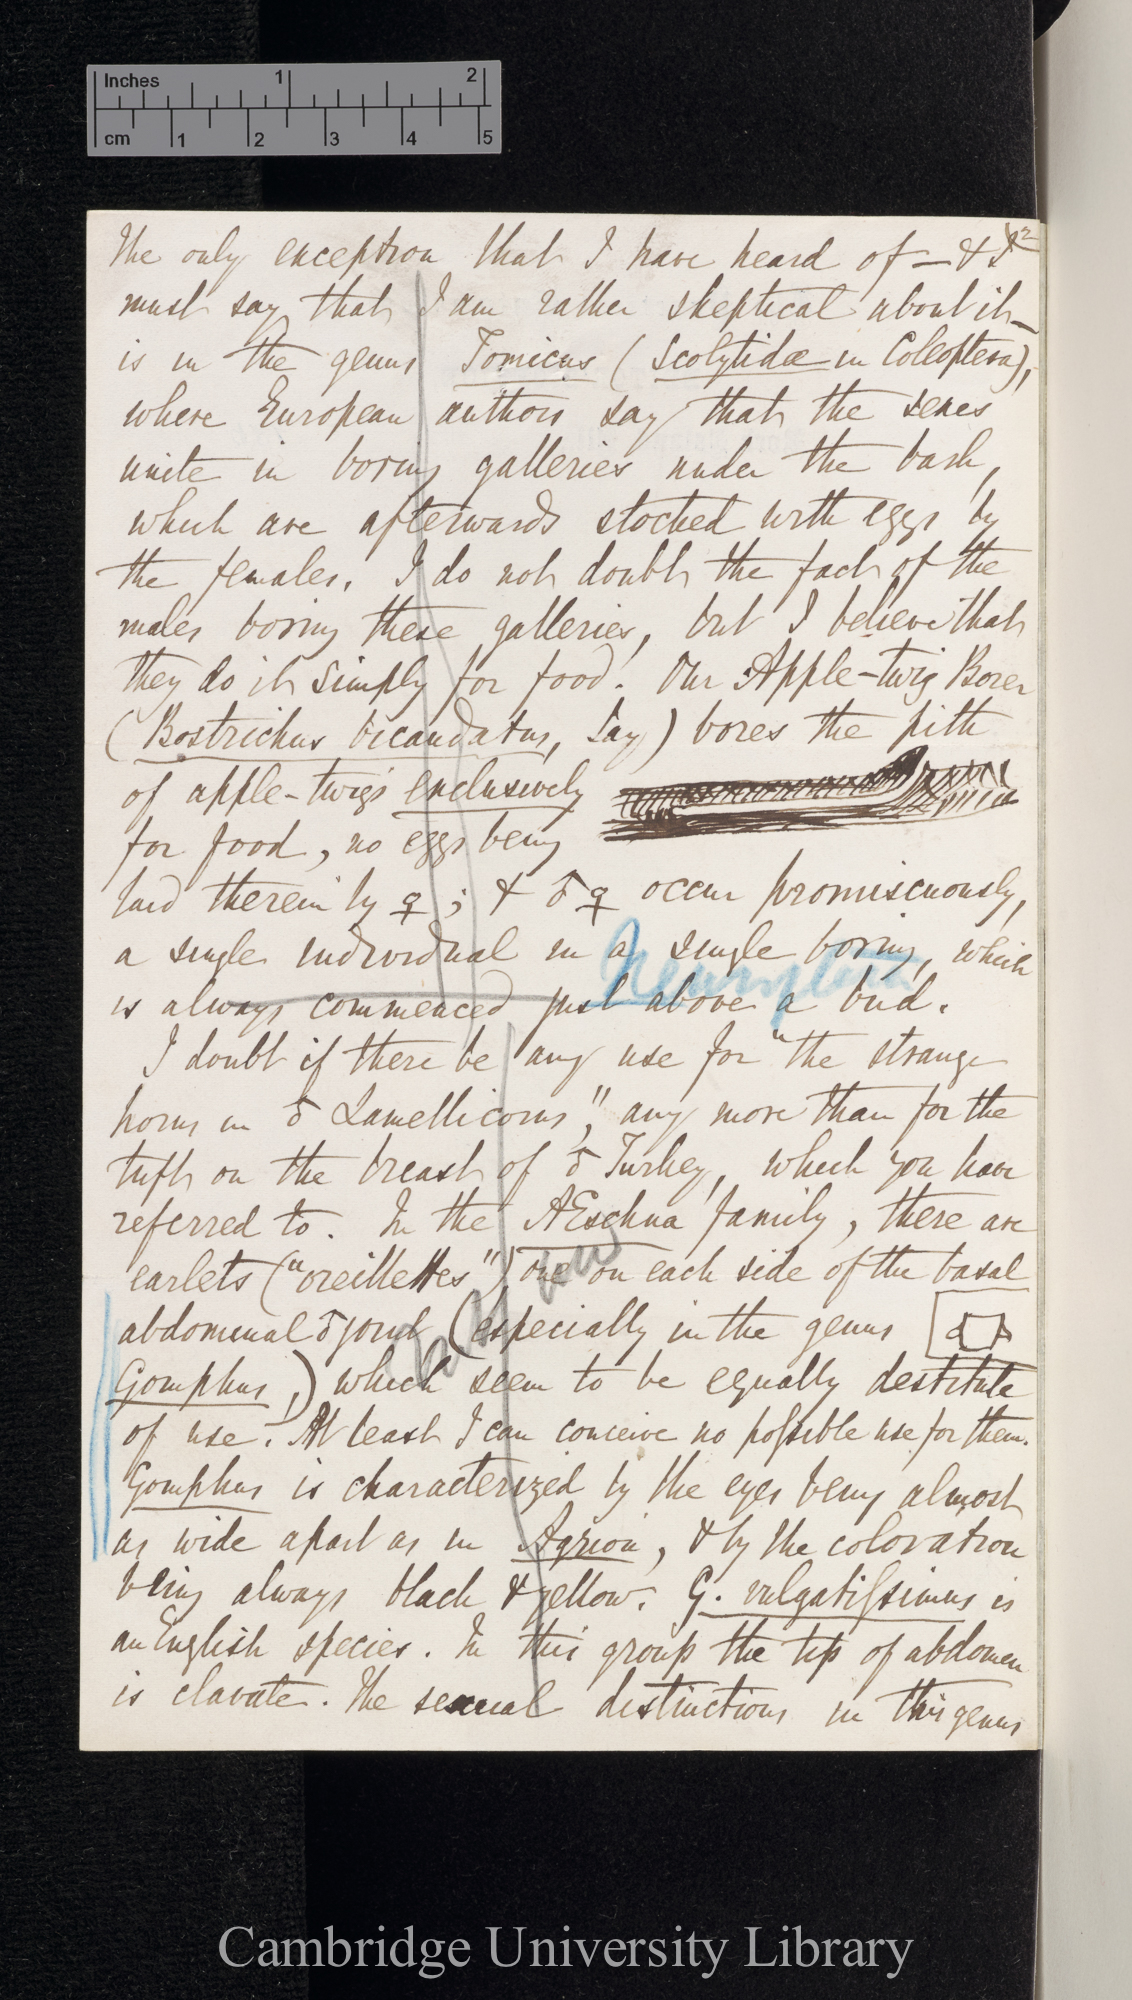 Inches 1 2
cm 1 2 3 4 5
2
The only exception that I have heard of — & I
must say that I am rather skeptical about it —
is in the genus Tomicus (Scolytidæ in Coleoptera),
where European authors say that the sexes
unite in boring galleries under the bark,
which are afterwards stocked with eggs by
the females. I do not doubt the fact of the
males boring these galleries, but I believe that
they do it simply for food. Our Apple-twig Borer
(Bostrichus bicaudatus, Say) bores the pith
of apple-twigs exclusively
for food, no eggs being
laid therein by ♀; & ♂ ♀ occur promiscuously,
a single individual in a single boring, which
is always commenced just above a bud.
I doubt if there be any use for "the strange
horns in ♂ Lamellicorns", any more than for the
tuft on the breast of ♂ Turkey, which you have
referred to. In the AEschna family, there are
earlets ("oreillettes") one on each side of the basal
abdominal ♂ joint (especially in the genus
Gomphus,) which seem to be equally destitute
of use. At least I can conceive no possible use for them.
Gomphus is characterized by the eyes being almost
as wide apart as in Agrion, & by the coloration
being always black & yellow. G. vulgatissimus is
an English species. In this group the tip of abdomen
is clavate. The sexual distinctions in this genus
Cambridge University Library